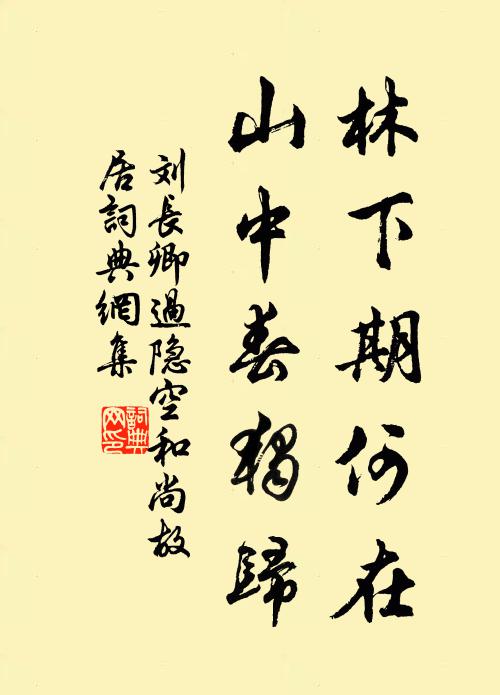 林下期何在
山中春獨歸
刘長卿過隐空和尚故
居詞典網集
詞典
网印